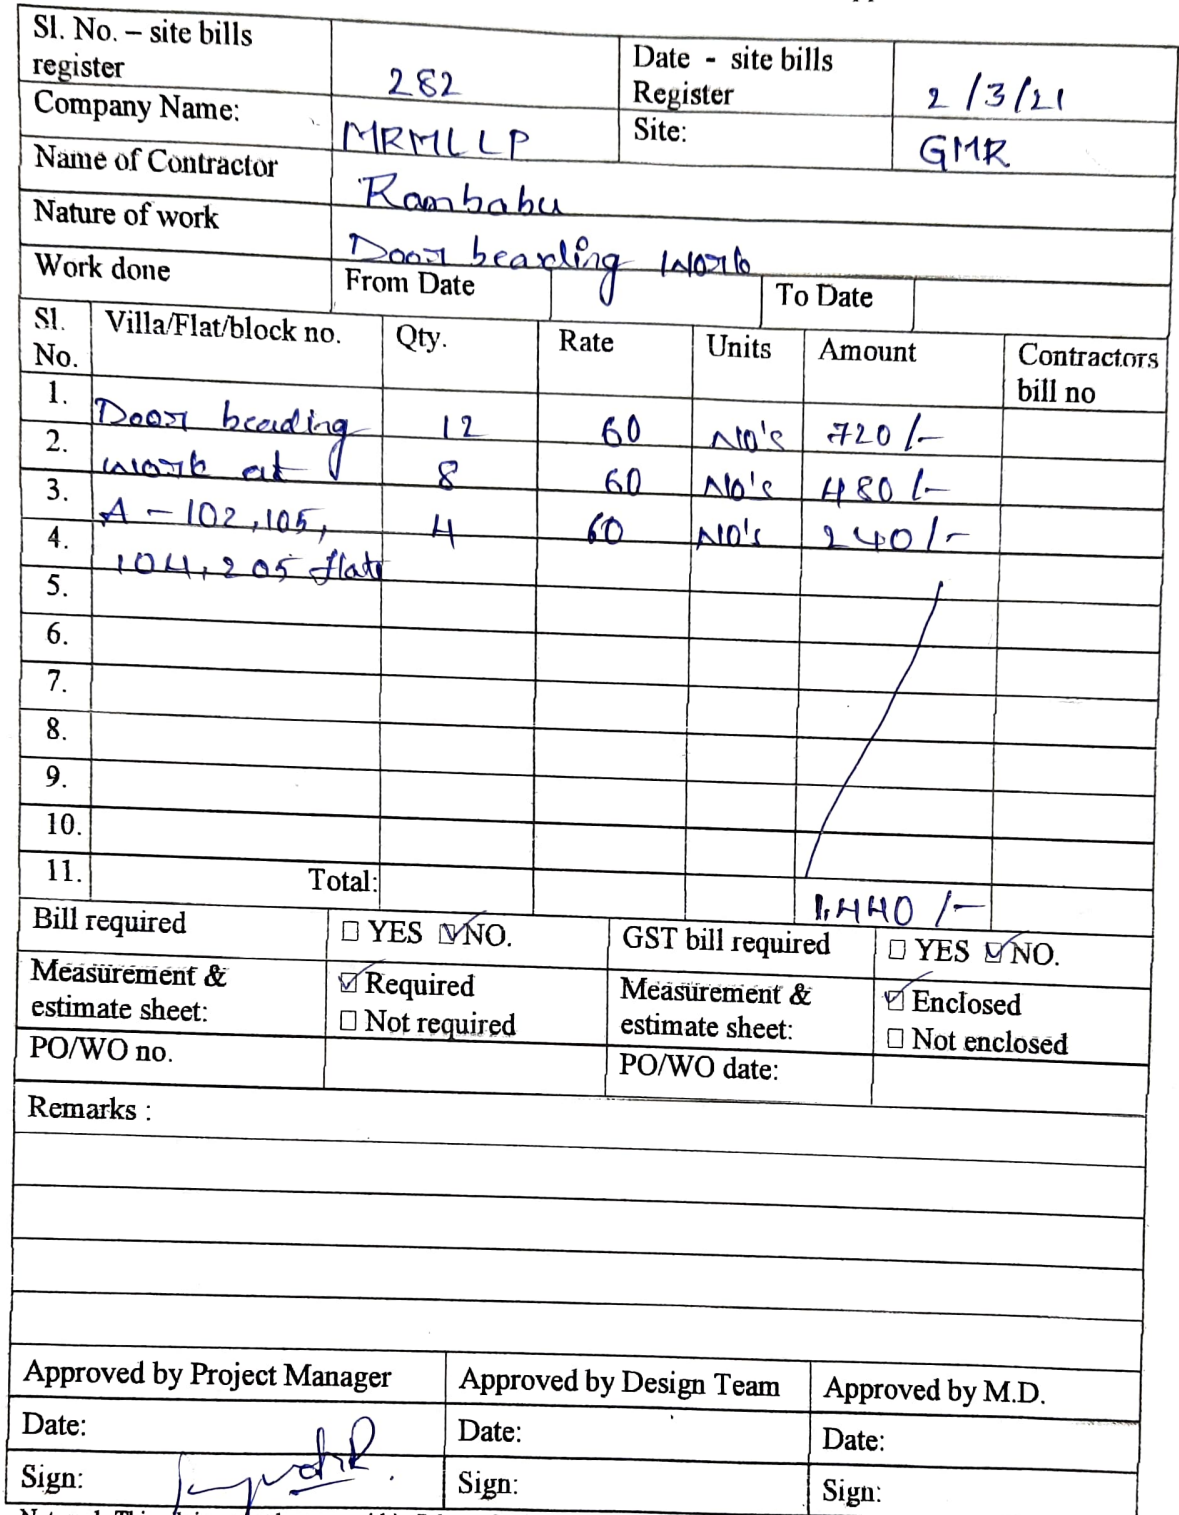 Sl. No. – site bills register 282 Date - site bills Register 2/3/21
Company Name: MRMLLP Site: GMR
Name of Contractor Rambabu
Nature of work Door beading work
Work done From Date To Date
Sl. No. Villa/Flat/block no. Qty. Rate Units Amount Contractors bill no
1. Door beading 12 60 NO's 720/-
2. work at 8 60 NO's 480/-
3. A - 102, 105, 4 60 NO's 240/-
4. 104, 205 flats
5.
6.
7.
8.
9.
10.
11. Total: 1,440/-
Bill required □ YES ☑ NO. GST bill required □ YES ☑ NO.
Measurement & estimate sheet: ☑ Required □ Not required Measurement & estimate sheet: ☑ Enclosed □ Not enclosed
PO/WO no. PO/WO date:
Remarks :
Approved by Project Manager Approved by Design Team Approved by M.D.
Date: Date: Date:
Sign: Sign: Sign: